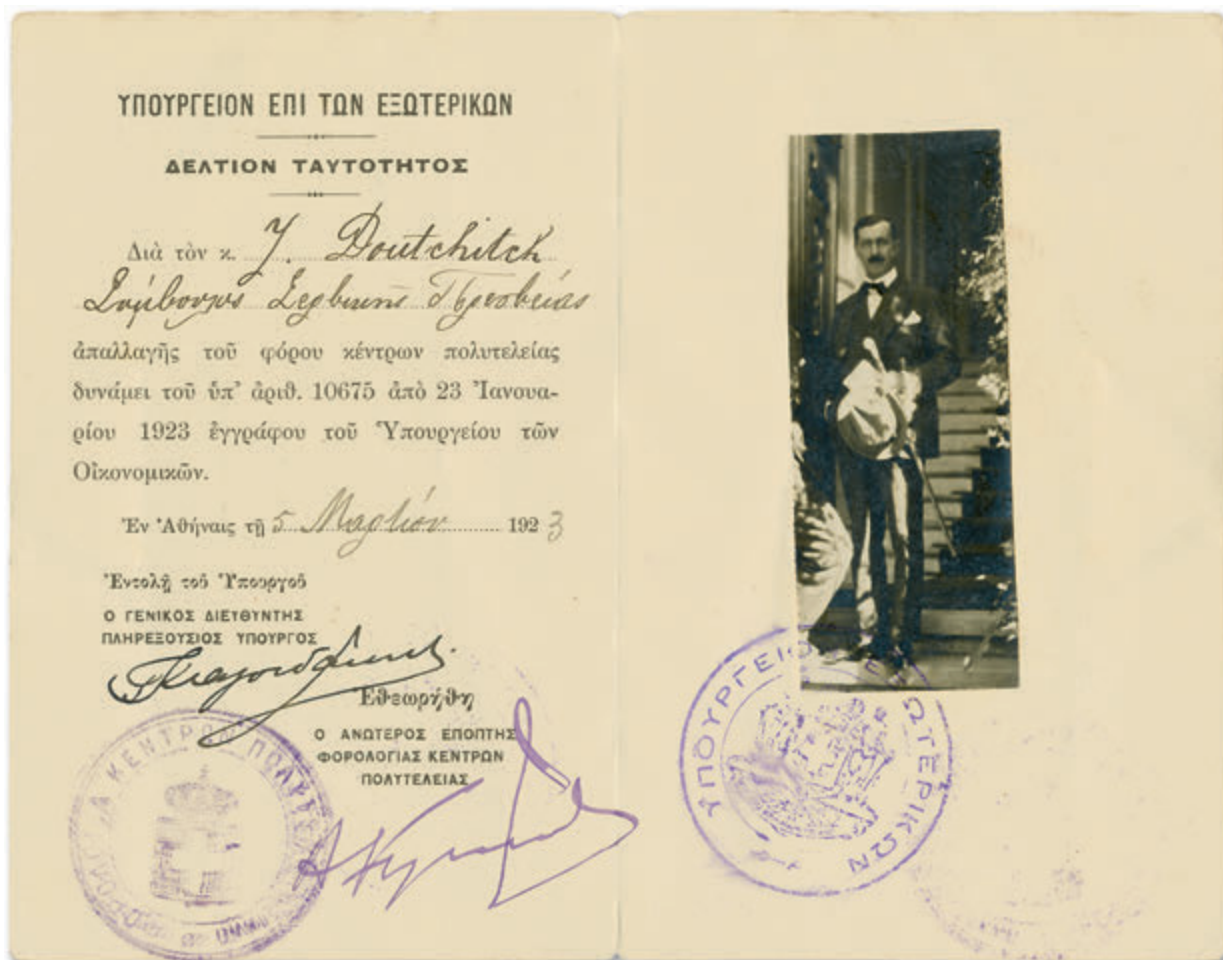 ΥΠΟΥΡΓΕΙΟΝ ΕΠΙ ΤΩΝ ΕΞΩΤΕΡΙΚΩΝ
ΔΕΛΤΙΟΝ ΤΑΥΤΟΤΗΤΟΣ
Διὰ τὸν κ. J. Doutchitch
Σύμβουλος Σερβικῆς Πρεσβείας
ἀπαλλαγῆς τοῦ φόρου κέντρων πολυτελείας
δυνάμει τοῦ ὑπ' ἀριθ. 10675 ἀπὸ 23 Ἰανουα-
ρίου 1923 ἐγγράφου τοῦ Ὑπουργείου τῶν
Οἰκονομικῶν.
Ἐν Ἀθήναις τῇ 5 Μαρτίου 1923
Ἐντολῇ τοῦ Ὑπουργοῦ
Ο ΓΕΝΙΚΟΣ ΔΙΕΥΘΥΝΤΗΣ
ΠΛΗΡΕΞΟΥΣΙΟΣ ΥΠΟΥΡΓΟΣ
Ἐθεωρήθη
Ο ΑΝΩΤΕΡΟΣ ΕΠΟΠΤΗΣ
ΦΟΡΟΛΟΓΙΑΣ ΚΕΝΤΡΩΝ
ΠΟΛΥΤΕΛΕΙΑΣ
ΚΕΝΤΡΩΝ
ΥΠΟΥΡΓΕΙΟ ΕΞΩΤΕΡΙΚΩΝ